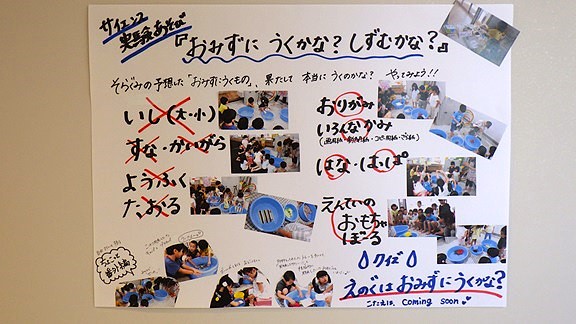 サイエンス
実験あそび
『おみずに うくかな？しずむかな？』
そらぐみの予想した「おみずにうくもの」、果たして 本当に うくのかな？ やってみよう！！
いし（大・小）
すな・かいがら
ようふく
たおる
おりがみ
いろんなかみ
はな・はっぱ
えんていの
おもちゃ
ぼーる
クイズ
えのぐはおみずにうくかな？
こたえは、Coming soon
ちょっと
番外編